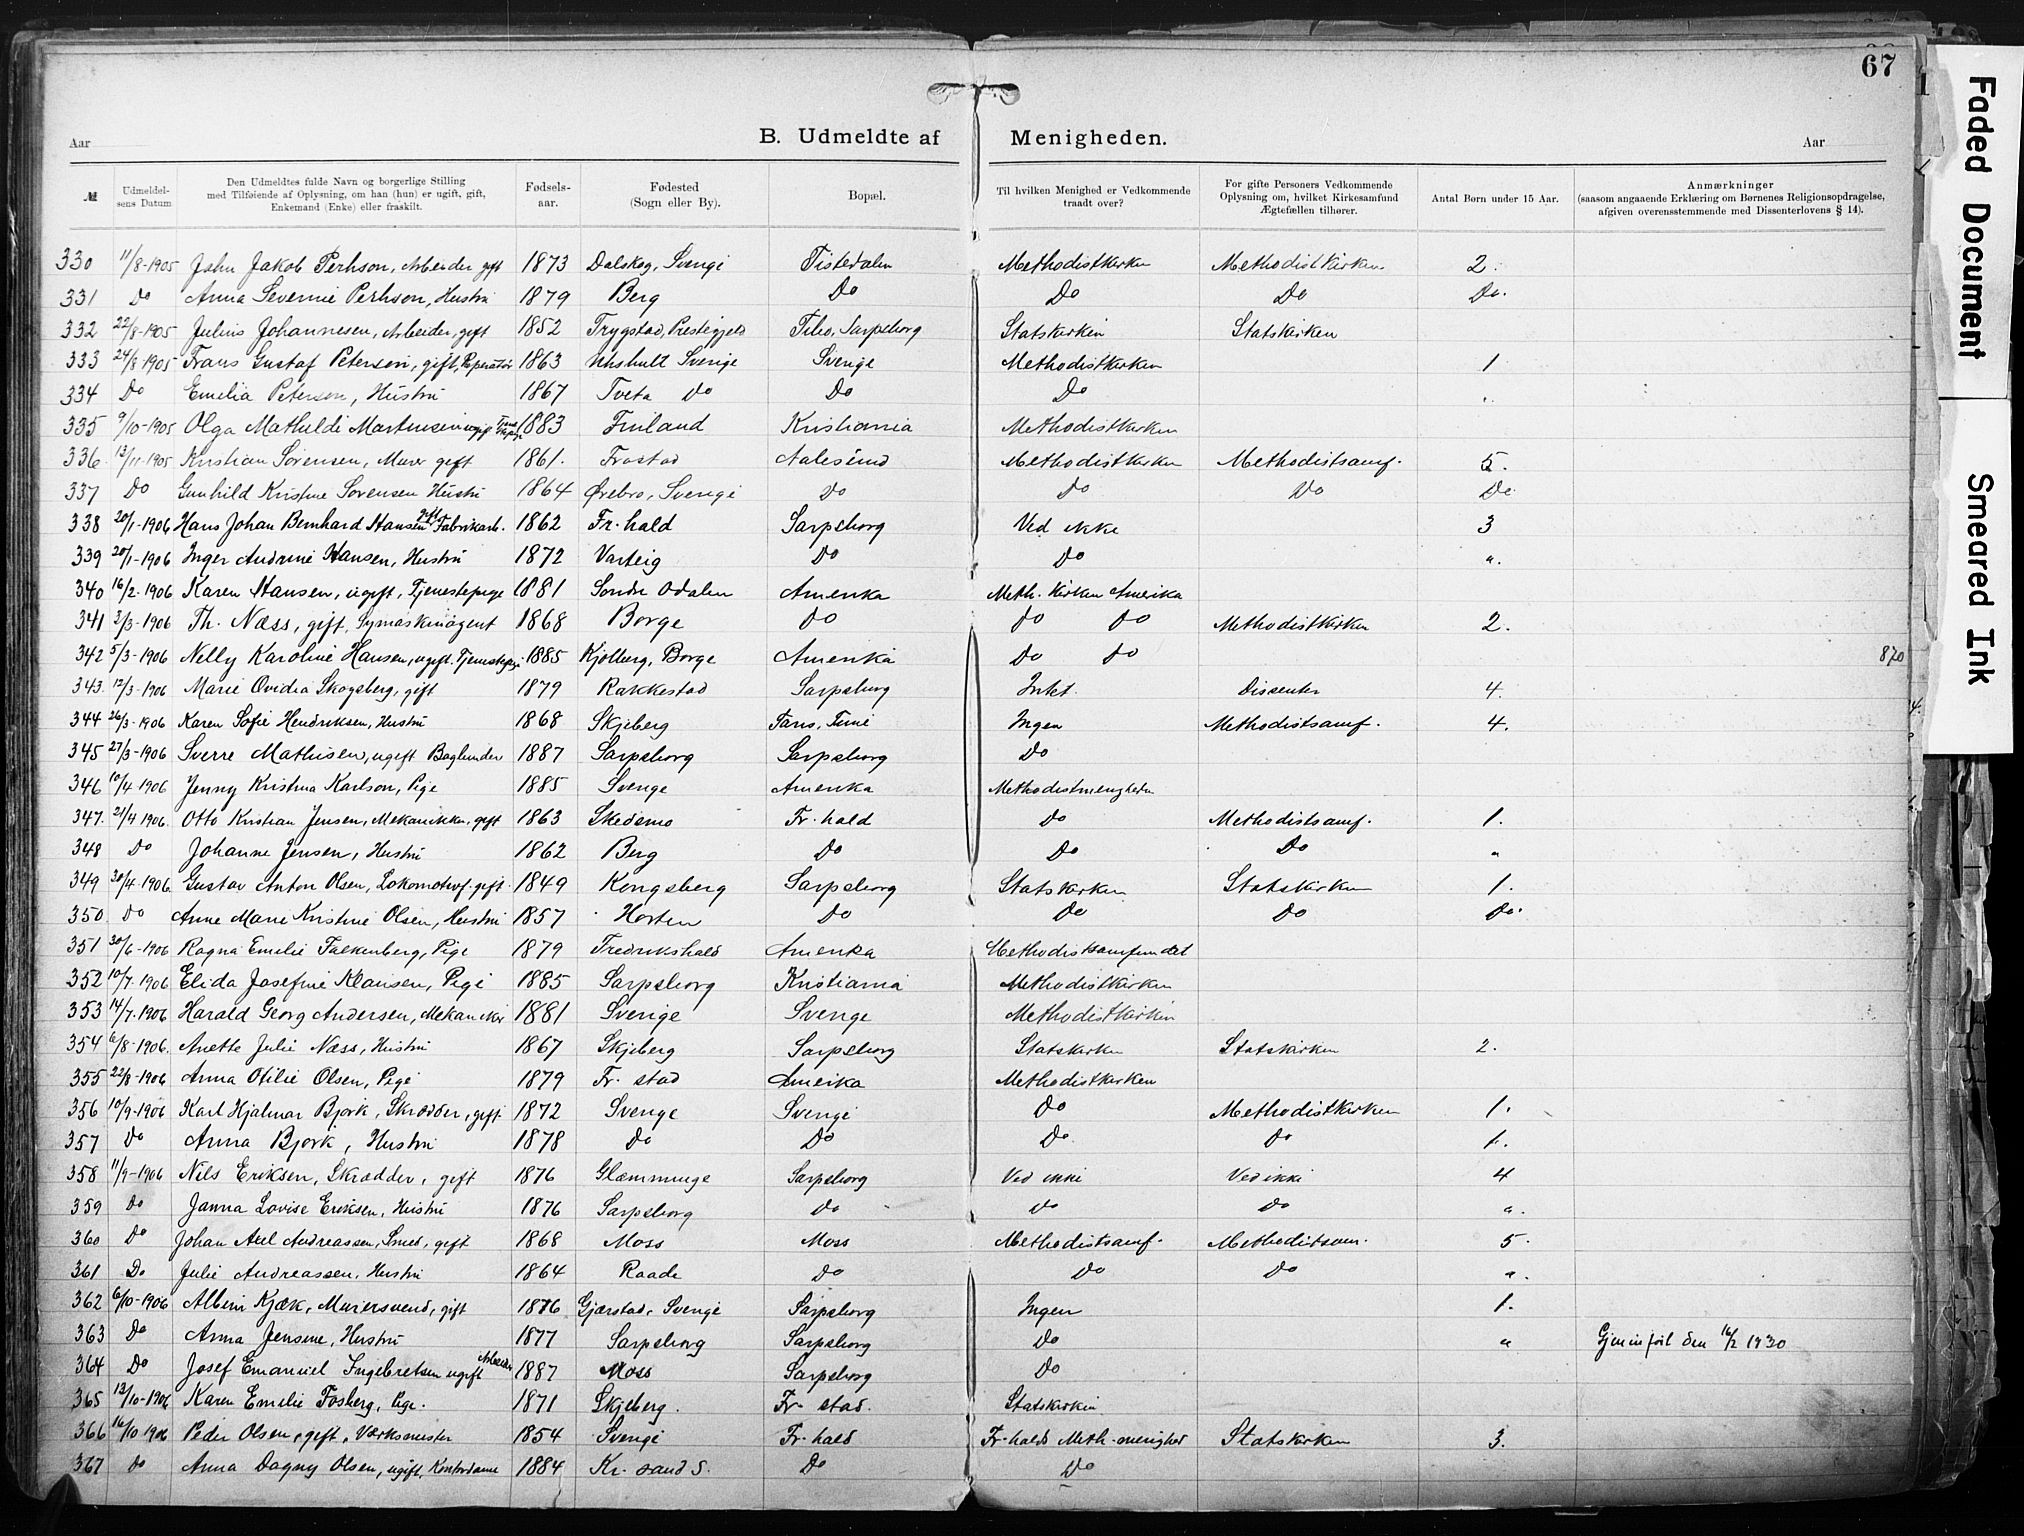 67
Faded Document
Smeared Ink
B. Udmeldte af Menigheden.
Aar Aar
№ | Udmeldelsens Datum | Den Udmeldtes fulde Navn og borgerlige Stilling med Tilføiende af Oplysning, om han (hun) er ugift, gift, Enkemand (Enke) eller fraskilt. | Fødselsaar. | Fødested (Sogn eller By). | Bopæl. | Til hvilken Menighed er Vedkommende traadt over? | For gifte Personers Vedkommende Oplysning om, hvilket Kirkesamfund Ægtefællen tilhører. | Antal Børn under 15 Aar. | Anmærkninger (saasom angaaende Erklæring om Børnenes Religionsopdragelse, afgiven overensstemmende med Dissenterlovens § 14).
330 11/8-1905 John Jakob Perhson, Arbeider gift 1873 Dalskog, Sverige Tistedalen Methodistkirken Methodistkirken 2.
331 Do Anna Severine Perhson, Hustru 1879 Berg Do Do Do Do.
332 22/8-1905 Julius Johannesen, Arbeider, gift 1852 Trygstad, Prestegjeld Sarpsborg Statskirken Statskirken
333 24/8 1905 Frans Gustaf Peterson, gift, Reperatør 1863 Sverige Sverige Methodistkirken 1
334 Do Emelia Peterson, Hustru 1867 Tveta Do Do Do "
335 9/10-1905 Olga Mathilde Martinsen ugift 1883 Finland Kristiania Methodistkirken
336 13/11-1905 Kristian Sørensen, Murer gift 1861. Frastad Aalesund Methodistkirken Methodistsamf. 5.
337 Do Gunhild Kristine Sørensen Hustru 1864 Ørebro, Sverige Do Do Do Do
338 20/1-1906 Hans Johan Bernhard Hansen gift Fabrikarb. 1862 Fr.hald Sarpsborg Ved ikke 3
339 20/1-1906 Inger Andrine Hansen, Hustru 1872 Varteig Do Do "
340 16/2-1906 Karen Hansen, ugift, Tjenestepige 1881 Søndre Odalen Amerika Meth. Kirken Amerika
341 2/3-1906 Th. Næss, gift, Symaskinagent 1868 Borge Do Do Do Methodistkirken 2.
342 5/3-1906 Nelly Karoline Hansen, ugift. Tjenestepige 1885 Kjølberg, Borge Amerika Do Do 870
343 12/3-1906 Marie Ovidia Skogsberg, gift 1879 Rakkestad Sarpsborg Dissenter 4.
344 26/3-1906 Karen Sofie Hendriksen, Hustru 1868 Skjeberg Tune Ingen Methodistsamf. 4.
345 27/3-1906 Sverre Mathisen, ugift Bogbinder 1887 Sarpsborg Sarpsborg Do
346 10/4 1906 Jenny Kristina Karlson, Pige 1885 Sverige Amerika Methodistmenigheden
347. 21/4 1906. Otto Kristian Jensen, Mekaniker, gift 1863 Skedsmo Fr.hald Do Methodistsamf. 1.
348 Do Johanne Jensen, Hustru 1862 Berg Do Do Do "
349 30/4-1906. Gustav Anton Olsen, Lokomotivf. gift. 1849 Kongsberg Sarpsborg Statskirken Statskirken 1.
350. Do Anne Marie Kristine Olsen, Hustru 1857 Horten Do Do Do Do.
351 30/6-1906 Ragna Emilie Falkenberg, Pige 1879 Fredrikshald Amerika Methodistsamfundet
352 10/7-1906 Elida Josefine Klausen, Pige 1885 Sarpsborg Kristiania Methodistkirken
353 14/7-1906 Harald Georg Andersen, Mekaniker 1881 Sverige Sverige Methodistkirken
354 6/8-1906. Anette Julie Næss, Hustru 1867 Skjeberg Sarpsborg Statskirken Statskirken 2.
355 22/8-1906 Anna Otilie Olsen, Pige 1879 Fr. stad Amerika Methodistkirken
356 10/9-1906 Karl Hjalmar Bjørk, Skrædder, gift 1872 Sverige Sverige Do Methodistkirken 1.
357 Do Anna Bjørk, Hustru 1878 Do Do Do Do 1.
358 11/9-1906 Nils Eriksen, Skrædder, gift 1876 Glemminge Sarpsborg Ved ikke Ved ikke 4
359 Do Janna Lovise Eriksen, Hustru 1876 Sarpsborg Do Do Do "
360 Do Johan Axel Andreassen, Smed, gift 1868 Moss Moss Methodistsamf. Methodistsam. 5.
361 Do Julie Andreassen, Hustru 1864 Raade Do Do Do "
362 6/10-1906 Albin Kjæk, Murersvend, gift 1876 Gjærstad, Sverige Sarpsborg Ingen 1.
363 Do Anna Jensine, Hustru 1877 Sarpsborg Sarpsborg Do " Gjeninført den 16/2 1930
364 Do Josef Emanuel Ingebretsen ugift Arbeider 1887 Moss Sarpsborg Do
365 12/10-1906 Karen Emelie Fosberg, Pige. 1871 Skjeberg. Fr. stad. Statskirken
366 16/10 1906 Peder Olsen, gift, Værksmester 1854 Sverige Fr.hald Fr.halds Meth.menighed Statskirken 3.
367 Do Anna Dagny Olsen, ugift, Kontordame 1884 Kr. sand S. Do Do